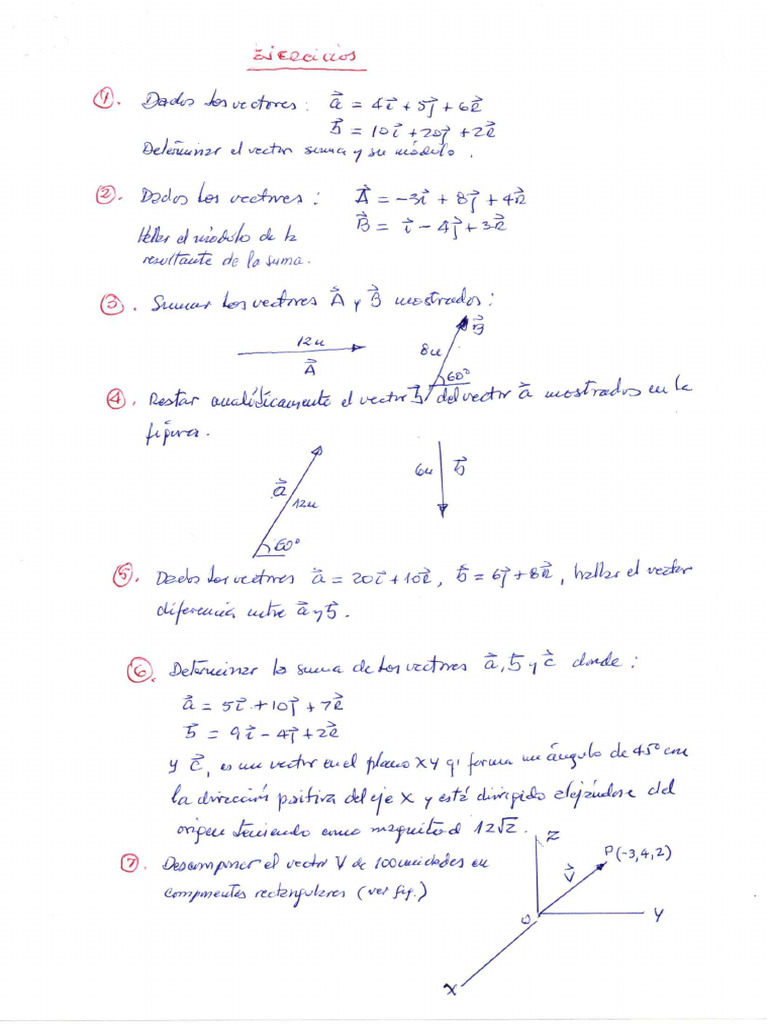 Ejercicios
1. Dados los vectores: a⃗ = 4i⃗ + 5j⃗ + 6k⃗
b⃗ = 10i⃗ + 20j⃗ + 2k⃗
Determinar el vector suma y su módulo.
2. Dados los vectores: A⃗ = -3i⃗ + 8j⃗ + 4k⃗
B⃗ = i⃗ - 4j⃗ + 3k⃗
Hallar el módulo de la
resultante de la suma.
3. Sumar los vectores A⃗ y B⃗ mostrados:
12u
A⃗
8u
B⃗
60°
4. Restar analíticamente el vector b⃗ del vector a⃗ mostrados en la
figura.
a⃗
12u
60°
6u
b⃗
5. Dados los vectores a⃗ = 20i⃗ + 10k⃗, b⃗ = 6j⃗ + 8k⃗, hallar el vector
diferencia entre a⃗ y b⃗.
6. Determinar la suma de los vectores a⃗, b⃗ y c⃗ donde:
a⃗ = 5i⃗ + 10j⃗ + 7k⃗
b⃗ = 9i⃗ - 4j⃗ + 2k⃗
y c⃗, es un vector en el plano XY q' forma un ángulo de 45° con
la dirección positiva del eje X y está dirigido alejándose del
origen teniendo como magnitud 12√2.
7. Descomponer el vector V de 100 unidades en
componentes rectangulares (ver fig.)
Z
P(-3,4,2)
V⃗
O
Y
X